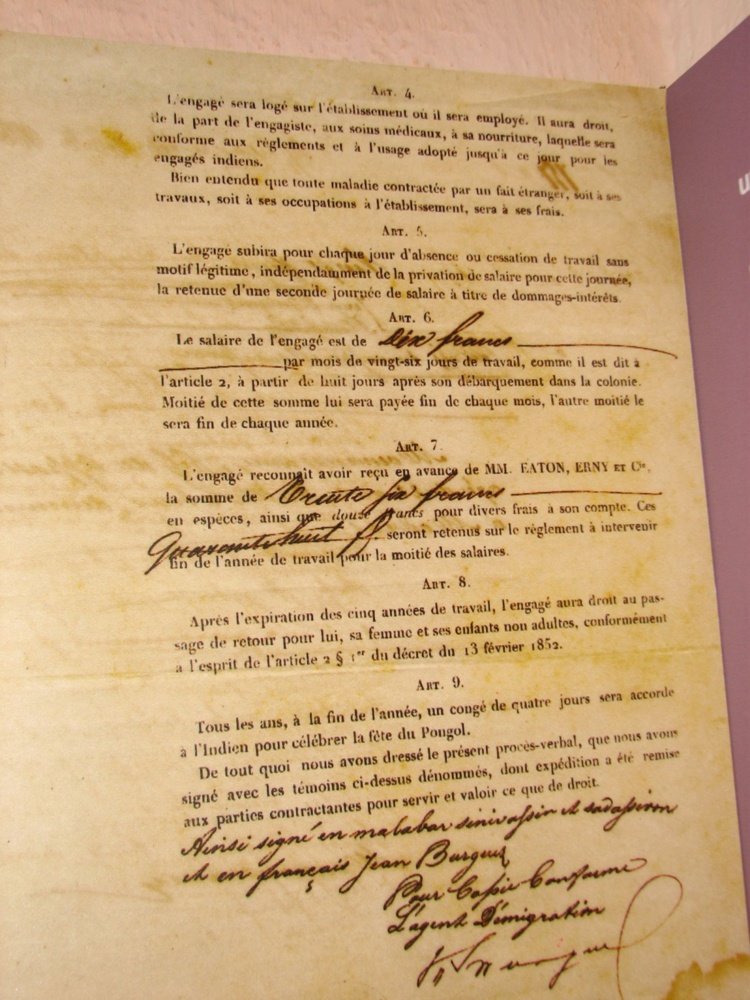 ART. 4.
L'engagé sera logé sur l'établissement où il sera employé. Il aura droit,
de la part de l'engagiste, aux soins médicaux, à sa nourriture, laquelle sera
conforme aux règlements et à l'usage adopté jusqu'à ce jour pour les
engagés indiens.
Bien entendu que toute maladie contractée par un fait étranger, soit à ses
travaux, soit à ses occupations à l'établissement, sera à ses frais.
ART. 5.
L'engagé subira pour chaque jour d'absence ou cessation de travail sans
motif légitime, indépendamment de la privation de salaire pour cette journée,
la retenue d'une seconde journée de salaire à titre de dommages-intérêts.
ART. 6.
Le salaire de l'engagé est de Dix francs
par mois de vingt-six jours de travail, comme il est dit à
l'article 2, à partir de huit jours après son débarquement dans la colonie.
Moitié de cette somme lui sera payée fin de chaque mois, l'autre moitié le
sera fin de chaque année.
ART. 7.
L'engagé reconnaît avoir reçu en avance de MM. EATON, ERNY ET Cie,
la somme de Trente six francs
en espèces, ainsi que douze francs pour divers frais à son compte. Ces
Quarante huit f. seront retenus sur le règlement à intervenir
fin de l'année de travail pour la moitié des salaires.
ART. 8.
Après l'expiration des cinq années de travail, l'engagé aura droit au pas-
sage de retour pour lui, sa femme et ses enfants non adultes, conformément
a l'esprit de l'article 2 § 1er du décret du 13 février 1852.
ART. 9.
Tous les ans, à la fin de l'année, un congé de quatre jours sera accordé
à l'Indien pour célébrer la fête du Pongol.
De tout quoi nous avons dressé le présent procès-verbal, que nous avons
signé avec les témoins ci-dessus dénommés, dont expédition a été remise
aux parties contractantes pour servir et valoir ce que de droit.
Ainsi signé en malabar sinivassin et sadassiron
et en français Jean Burguez
Pour Copie Conforme
L'agent D'émigration